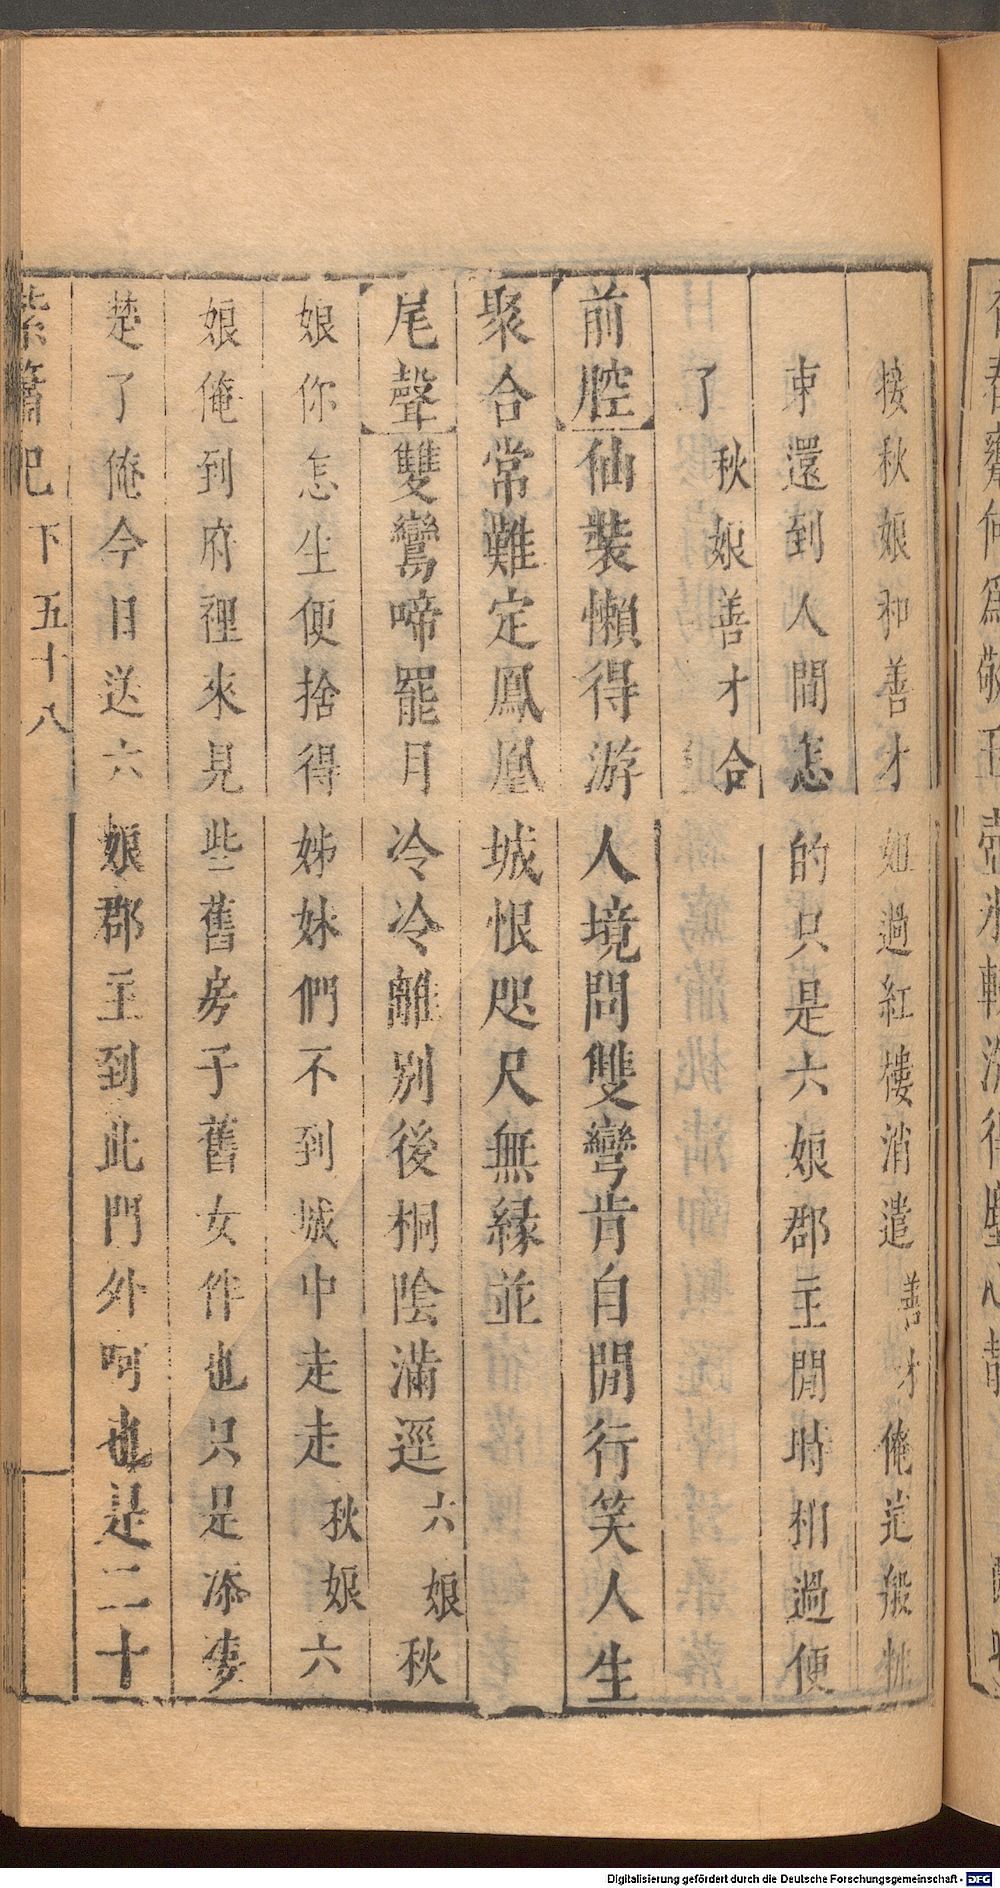 接秋娘和善才如過紅樓消遣善才俺這般粧
束還到人間怎的只是六娘郡主閒時相過便
了秋娘善才合
前腔仙裝懶得游人境問雙彎肯自閒行笑人生
聚合常難定鳳凰城恨咫尺無緣並
尾聲雙鸞啼罷月冷冷離別後桐陰滿逕六娘秋
娘你怎生便捨得姊妹們不到城中走走秋娘六
娘俺到府裡來見些舊房子舊女伴也只是添淒
楚了俺今日送六娘郡主到此門外呵也是二十
紫簫記 下 五十八
Digitalisierung gefördert durch die Deutsche Forschungsgemeinschaft - DFG